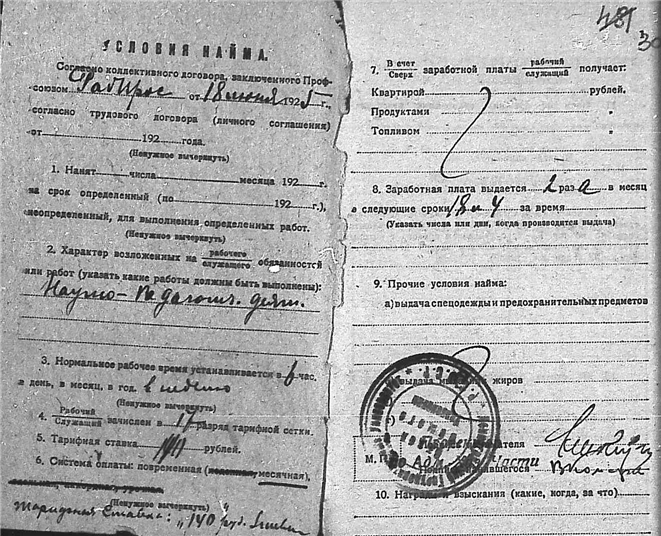 УСЛОВИЯ НАЙМА.
Согласно коллективного договора, заключенного Проф-
союзом Рабпрос от 18 июня 1925 г.,
согласно трудового договора (личного соглашения)
от 192 года.
(Ненужное вычеркнуть)
1. Нанят числа месяца 192 г.
на срок определенный (по 192 г.),
неопределенный, для выполнения определенных работ.
(Ненужное вычеркнуть)
2. Характер возложенных на рабочего
служащего обязанностей
или работ (указать какие работы должны быть выполнены):
Научно-педагогич. деят.
3. Нормальное рабочее время устанавливается в 6 час.
в день, в месяц, в год. в неделю
(Ненужное вычеркнуть)
4. Рабочий
Служащий зачислен в 17 разряд тарифной сетки.
5. Тарифная ставка рублей.
6. Система оплаты: повременная (месячная),
(Ненужное вычеркнуть)
Тарифная ставка: "140 руб.
481
30
7. В счет
Сверх заработной платы рабочий
служащий получает:
Квартирой рублей.
Продуктами "
Топливом "
8. Заработная плата выдается 2 раза в месяц
в следующие сроки 18 и 4 за время
(Указать числа или дни, когда производится выдача)
9. Прочие условия найма:
а) выдача спецодежды и предохранительных предметов
выдача жиров
М. П. по Адм. Части
10. Награды и взыскания (какие, когда, за что)